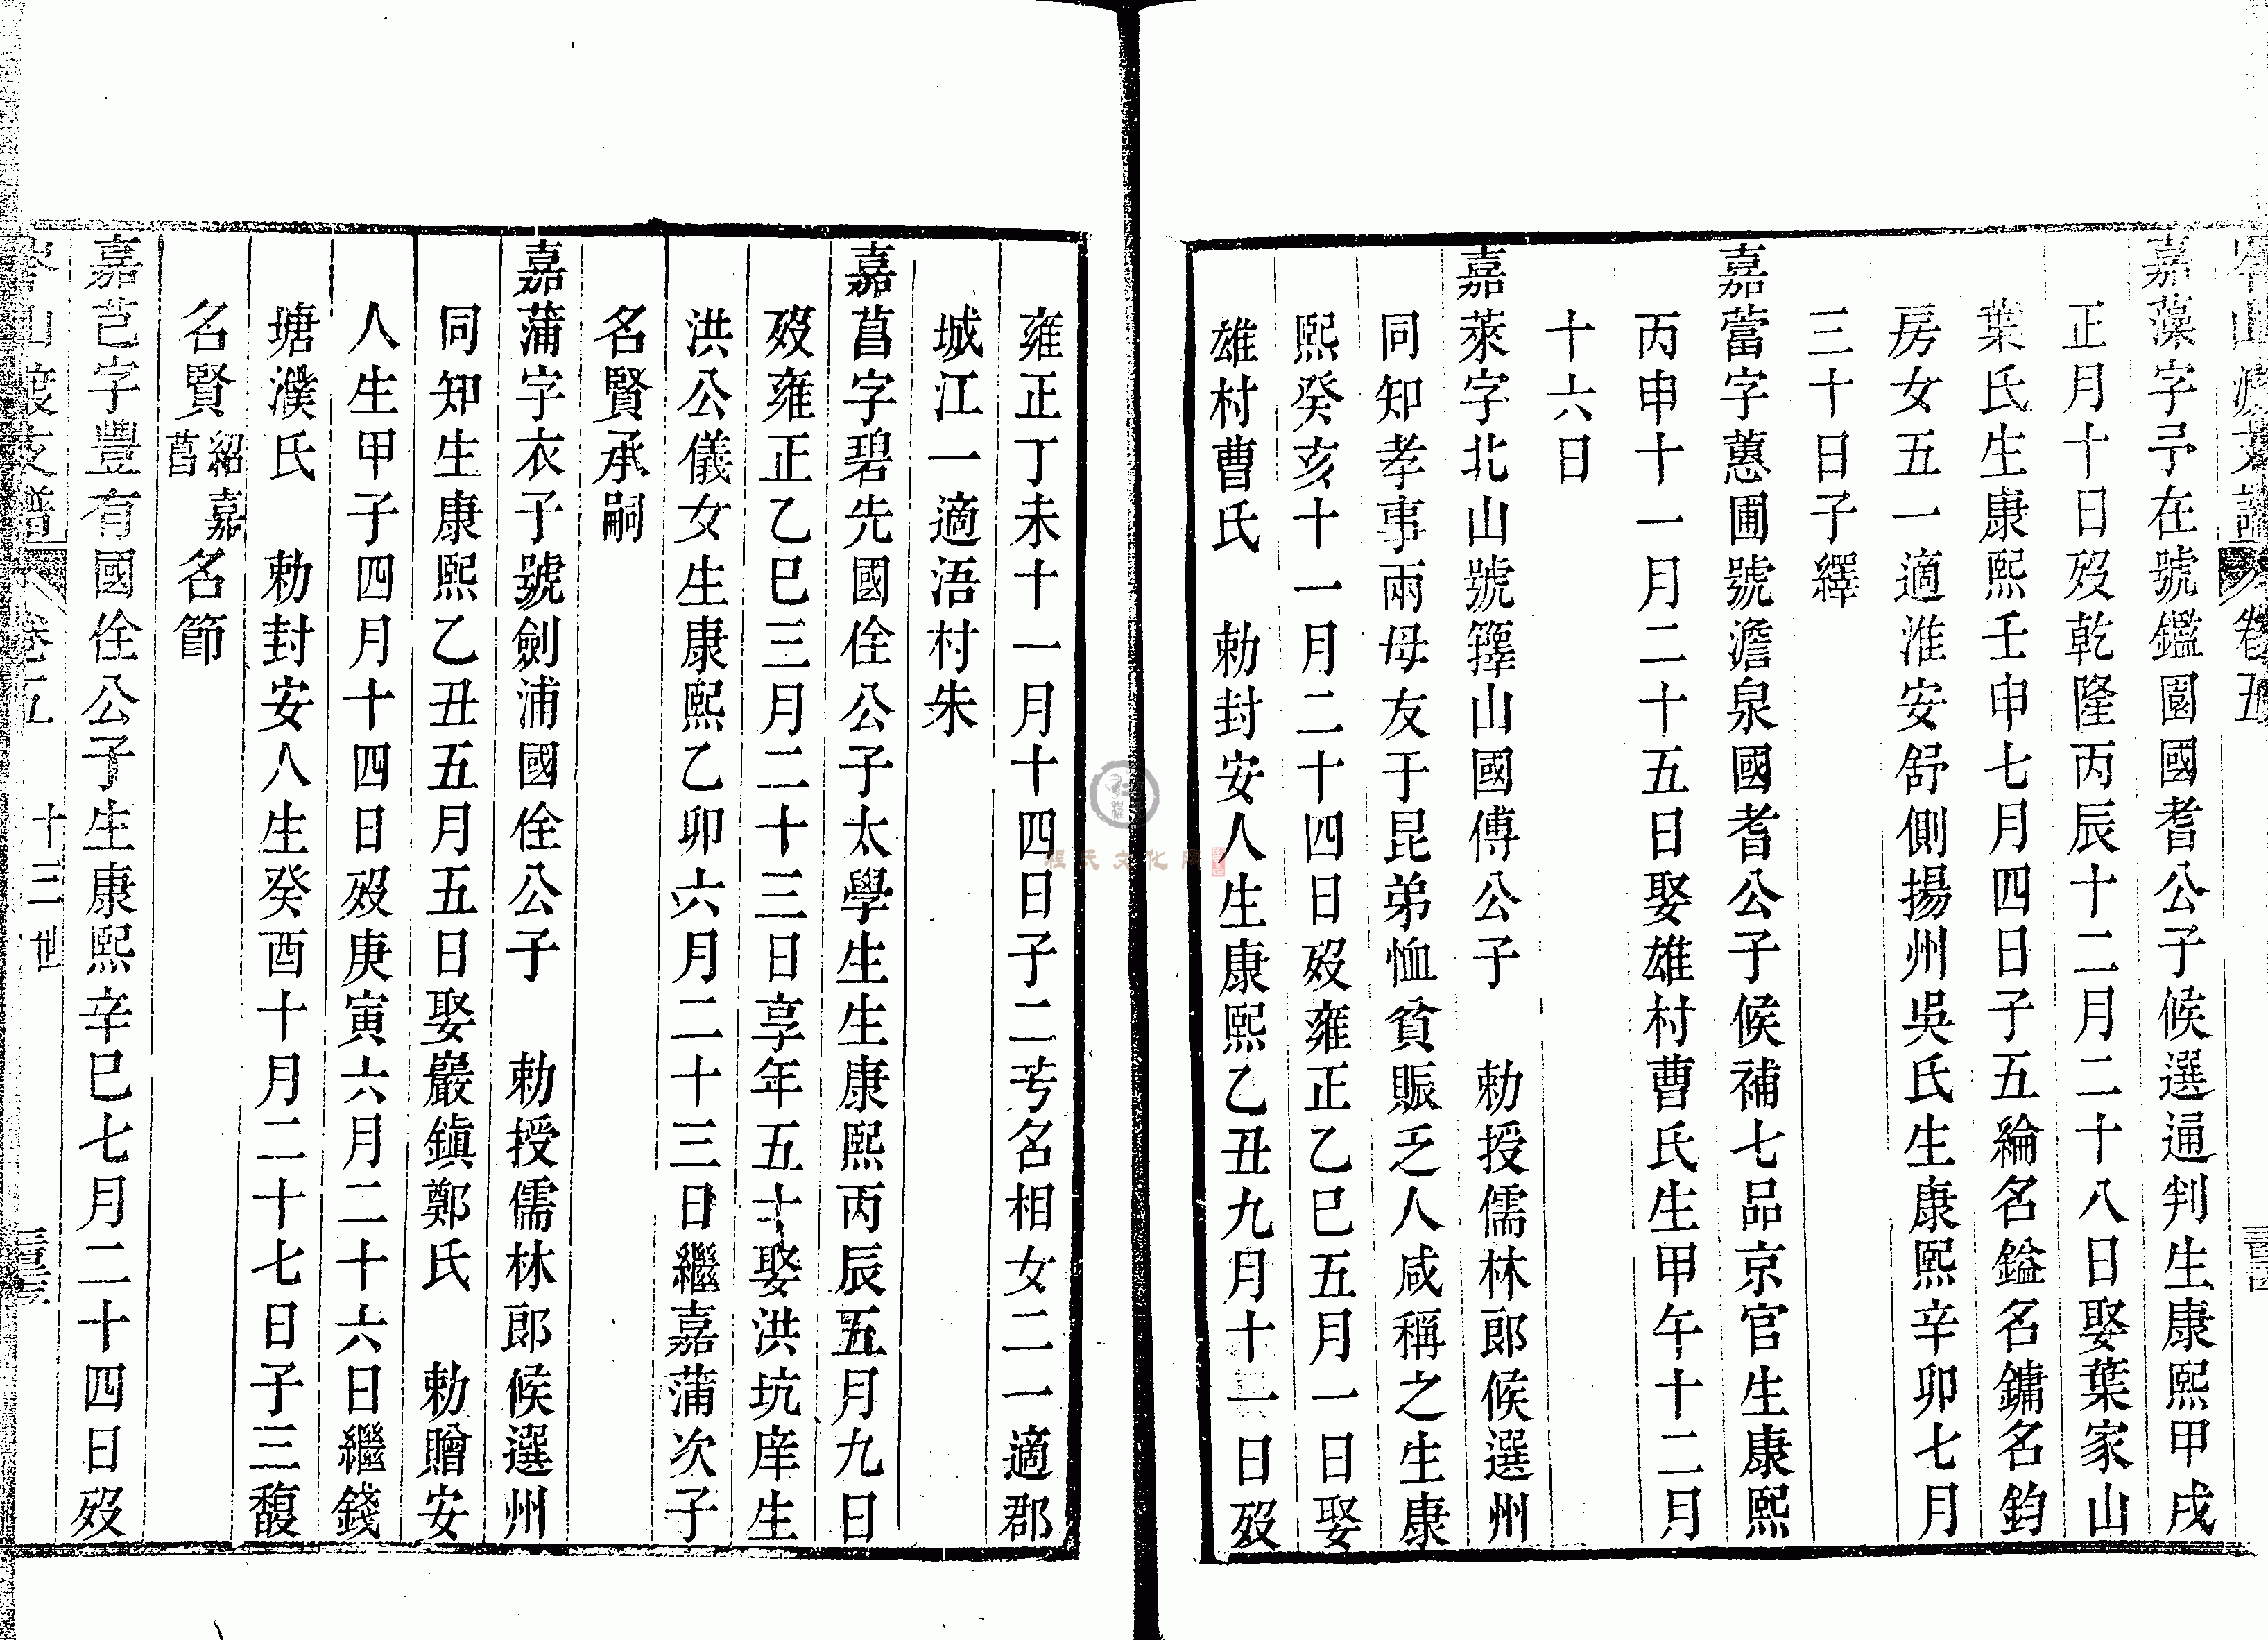 岑山渡支譜 卷五
嘉藻字予在號鑑園國耆公子候選通判生康熙甲戌
正月十日歿乾隆丙辰十二月二十八日娶葉家山
葉氏生康熙壬申七月四日子五綸名鎰名鏞名鈞
房女五一適淮安舒側揚州吳氏生康熙辛卯七月
三十日子繹
嘉蕾字蕙圃號澹泉國耆公子候補七品京官生康熙
丙申十一月二十五日娶雄村曹氏生甲午十二月
十六日
嘉萊字北山號籜山國傅公子 勅授儒林郎候選州
同知孝事兩母友于昆弟恤貧賑乏人咸稱之生康
熙癸亥十一月二十四日歿雍正乙巳五月一日娶
雄村曹氏 勅封安人生康熙乙丑九月十一日歿
雍正丁未十一月十四日子二芍名相女二一適郡
城江一適浯村朱
嘉菖字碧先國佺公子太學生生康熙丙辰五月九日
歿雍正乙巳三月二十三日享年五十娶洪坑庠生
洪公儀女生康熙乙卯六月二十三日繼嘉蒲次子
名賢承嗣
嘉蒲字衣于號劍浦國佺公子 勅授儒林郎候選州
同知生康熙乙丑五月五日娶巖鎮鄭氏 勅贈安
人生甲子四月十四日歿庚寅六月二十六日繼錢
塘濮氏 勅封安人生癸酉十月二十七日子三馥
名賢紹嘉菖名節
嘉芑字豐有國佺公子生康熙辛巳七月二十四日歿
岑山渡支譜 卷五 十三世